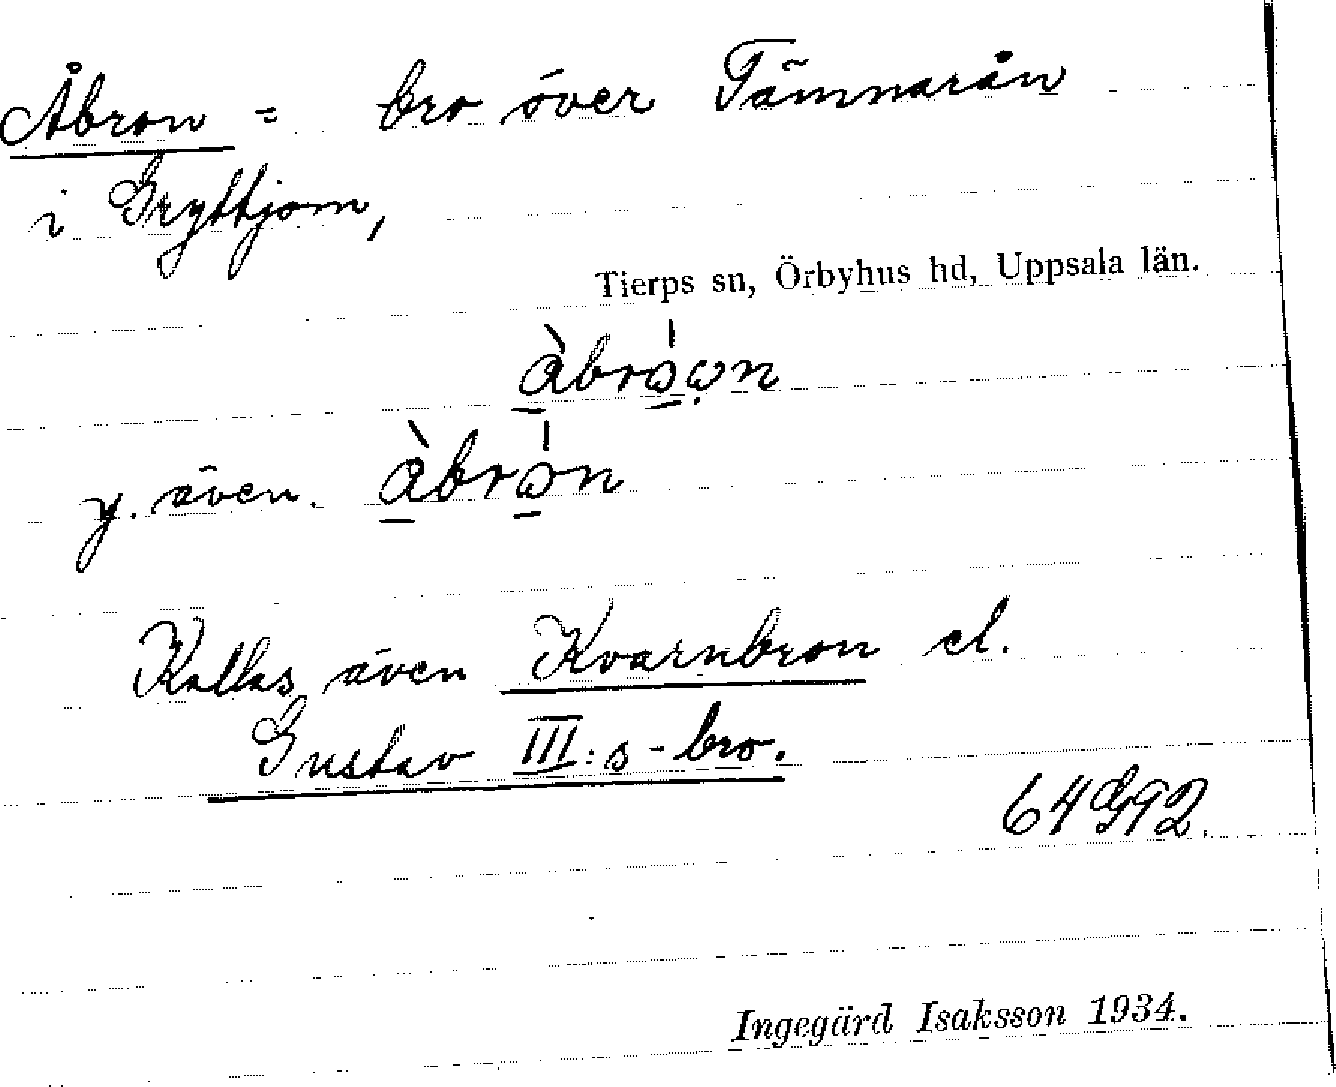 Åbron = bro över Tämnarån
i Gryttjom,
Tierps sn, Örbyhus hd, Uppsala län.
y. även.
Kallas även Kvarnbron el.
Gustav III:s-bro.
64G92.
Ingegärd Isaksson 1934.